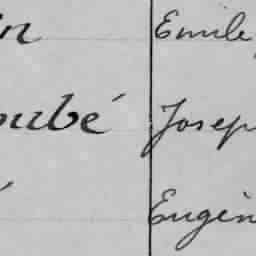 in Emile
oubé Josep
Eugèn